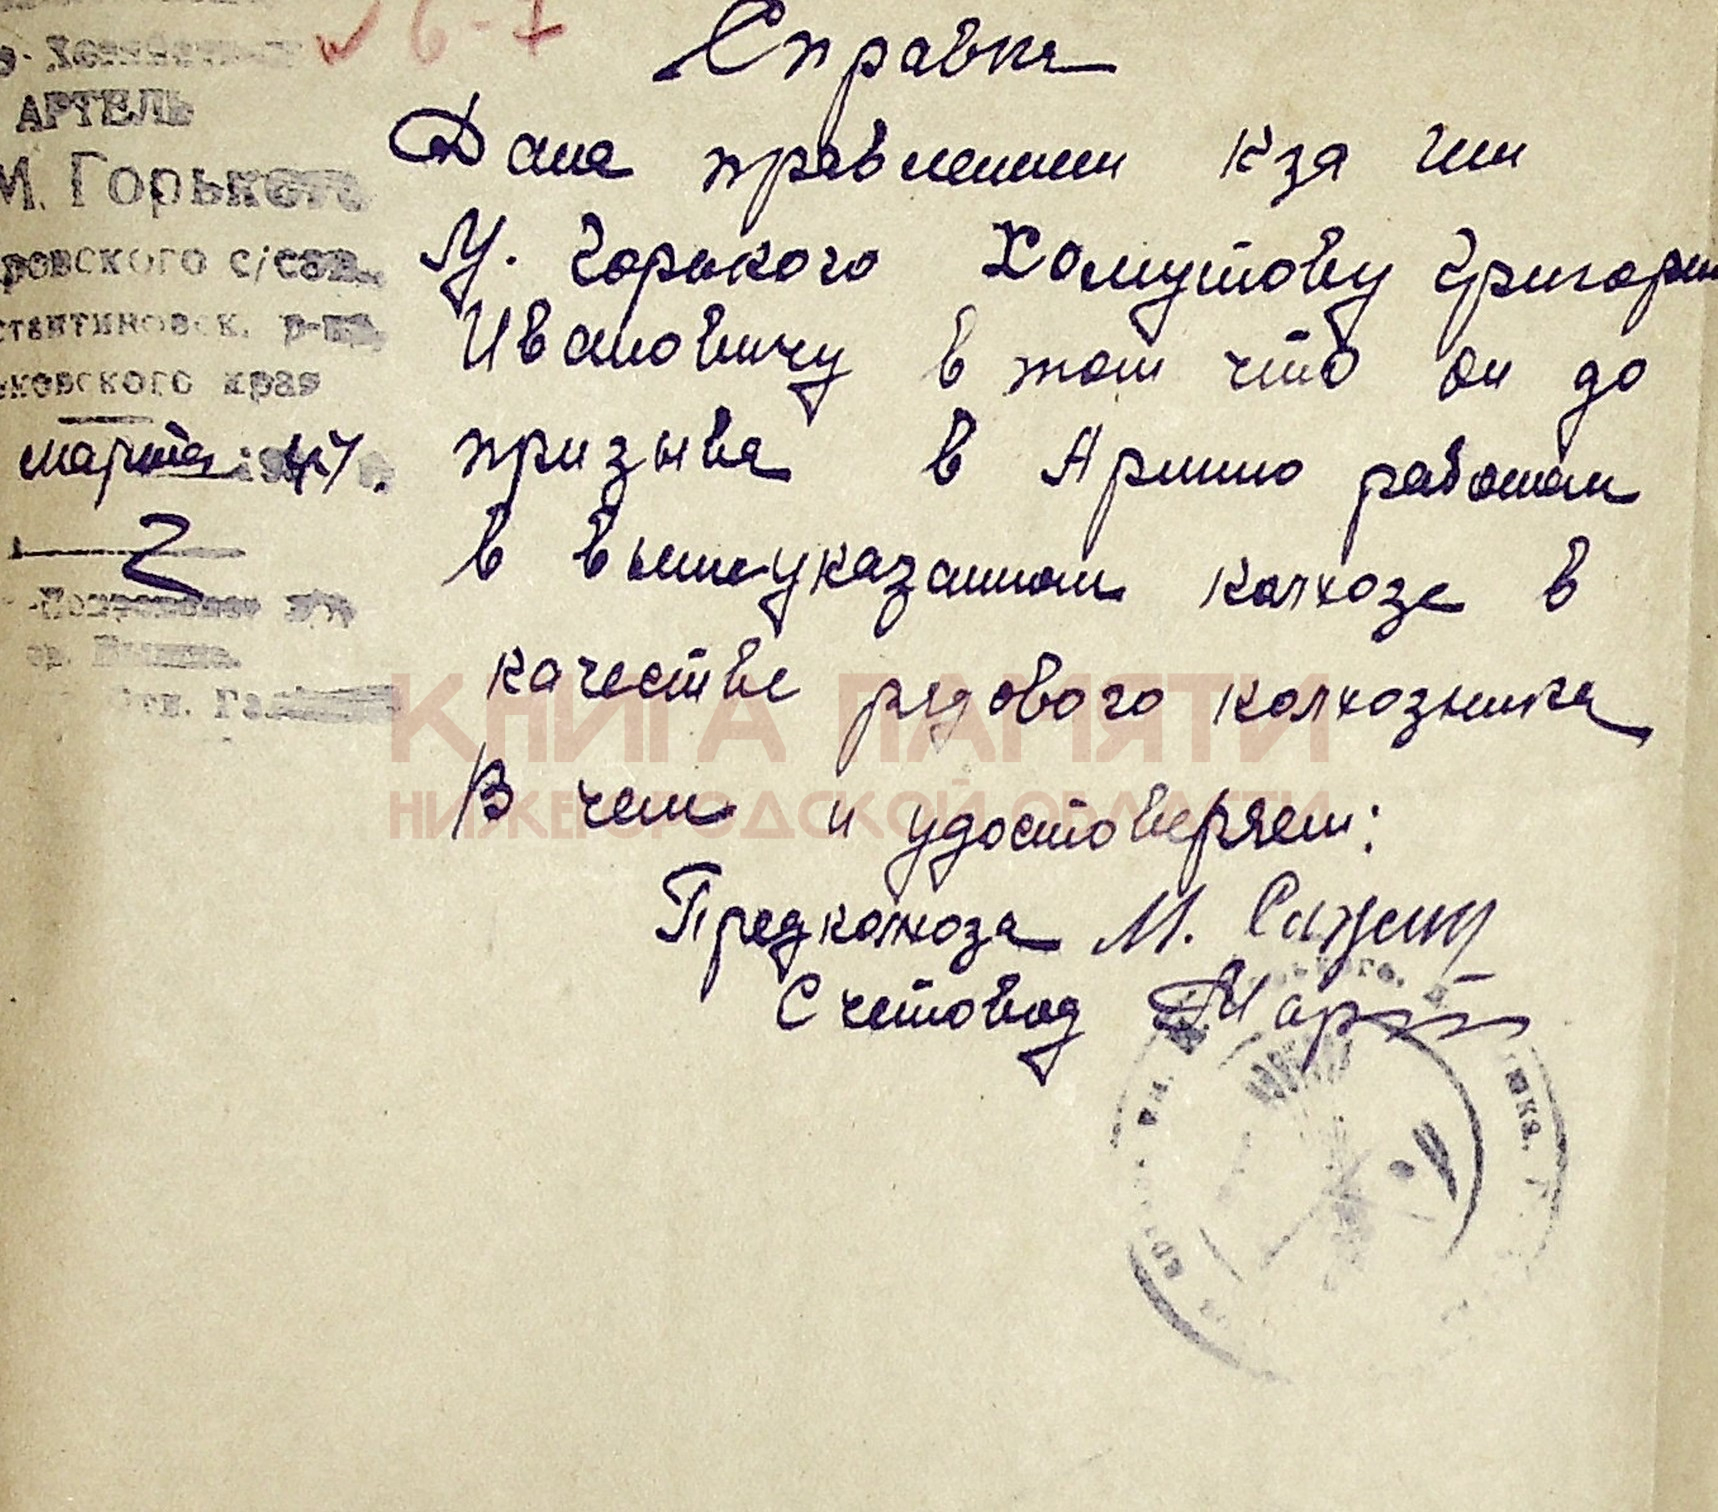 6-7
Справка
АРТЕЛЬ
М. Горького
ровского с/сов.
стантиновск. р-на,
ьковского края
марта 1947 г.
2
Дана правлением кза им
М. Горького Хомутову Григорию
Ивановичу в том что он до
призыва в Армию работал
в вышеуказанном колхозе в
качестве рядового колхозника
В чем и удостоверяем:
Предколхоза М.
Счетовод
КНИГА ПАМЯТИ
НИЖЕГОРОДСКОЙ ОБЛАСТИ